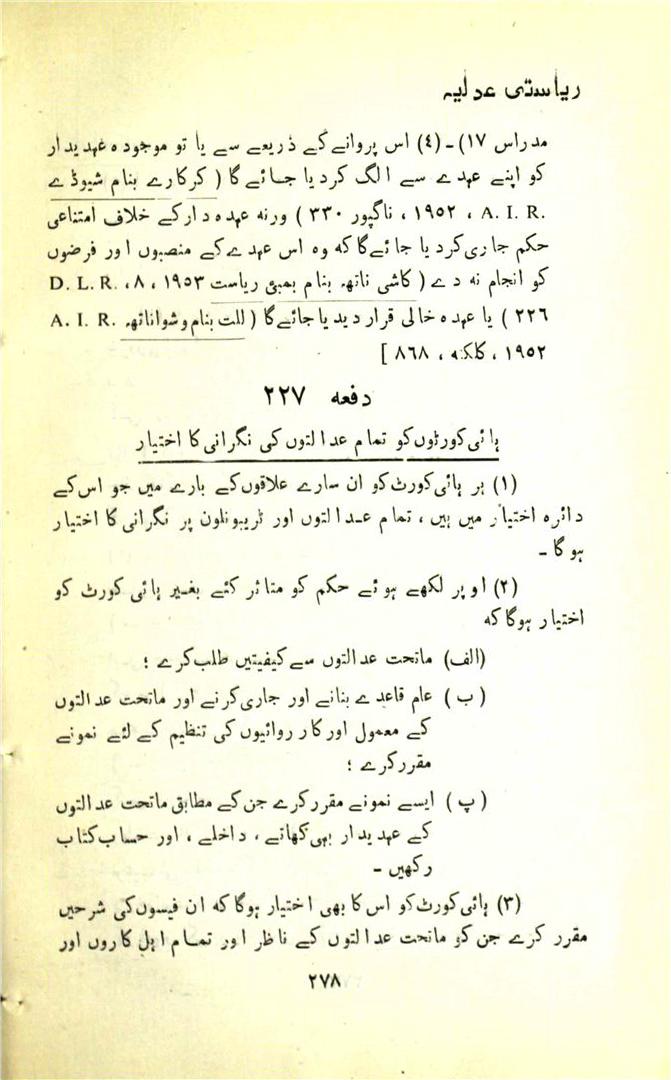 ریاستی عدلیہ
مدراس ۱۷) ـ (٤) اس پروانے کے ذریعے سے یا تو موجودہ عہدیدار
کو اپنے عہدے سے الگ کردیا جائے گا ( کرکارے بنام شیوڈے
A. I. R. ، ۱۹۵۲ ، ناگپور ۳۳۰ ) ورنہ عہدہ دار کے خلاف امتناعی
حکم جاری کردیا جائے گا کہ وہ اس عہدے کے منصبوں اور فرضوں
کو انجام نہ دے ( کاشی ناتھ بنام بمبئی ریاست ۱۹۵۳ ، ۸، D. L. R.
۲۲۶ ) یا عہدہ خالی قرار دیدیا جائے گا ( للت بنام وشواناتھ A. I. R.
۱۹۵۲ ، کلکتہ ، ۸۶۸ ]
دفعہ ۲۲۷
ہائی کورٹوں کو تمام عدالتوں کی نگرانی کا اختیار
(۱) ہر ہائی کورٹ کو ان سارے علاقوں کے بارے میں جو اس کے
دائرہ اختیار میں ہیں ، تمام عدالتوں اور ٹریبونلوں پر نگرانی کا اختیار
ہوگا ـ
(۲) اوپر لکھے ہوئے حکم کو متاثر کئے بغیر ہائی کورٹ کو
اختیار ہوگا کہ
(الف) ماتحت عدالتوں سے کیفیتیں طلب کرے ؛
( ب ) عام قاعدے بنانے اور جاری کرنے اور ماتحت عدالتوں
کے معمول اور کارروائیوں کی تنظیم کے لئے نمونے
مقرر کرے ؛
( پ ) ایسے نمونے مقرر کرے جن کے مطابق ماتحت عدالتوں
کے عہدیدار بہی کھاتے ، داخلے ، اور حساب کتاب
رکھیں ـ
(۳) ہائی کورٹ کو اس کا بھی اختیار ہوگا کہ ان فیسوں کی شرحیں
مقرر کرے جن کو ماتحت عدالتوں کے ناظر اور تمام اہل کاروں اور
۲۷۸